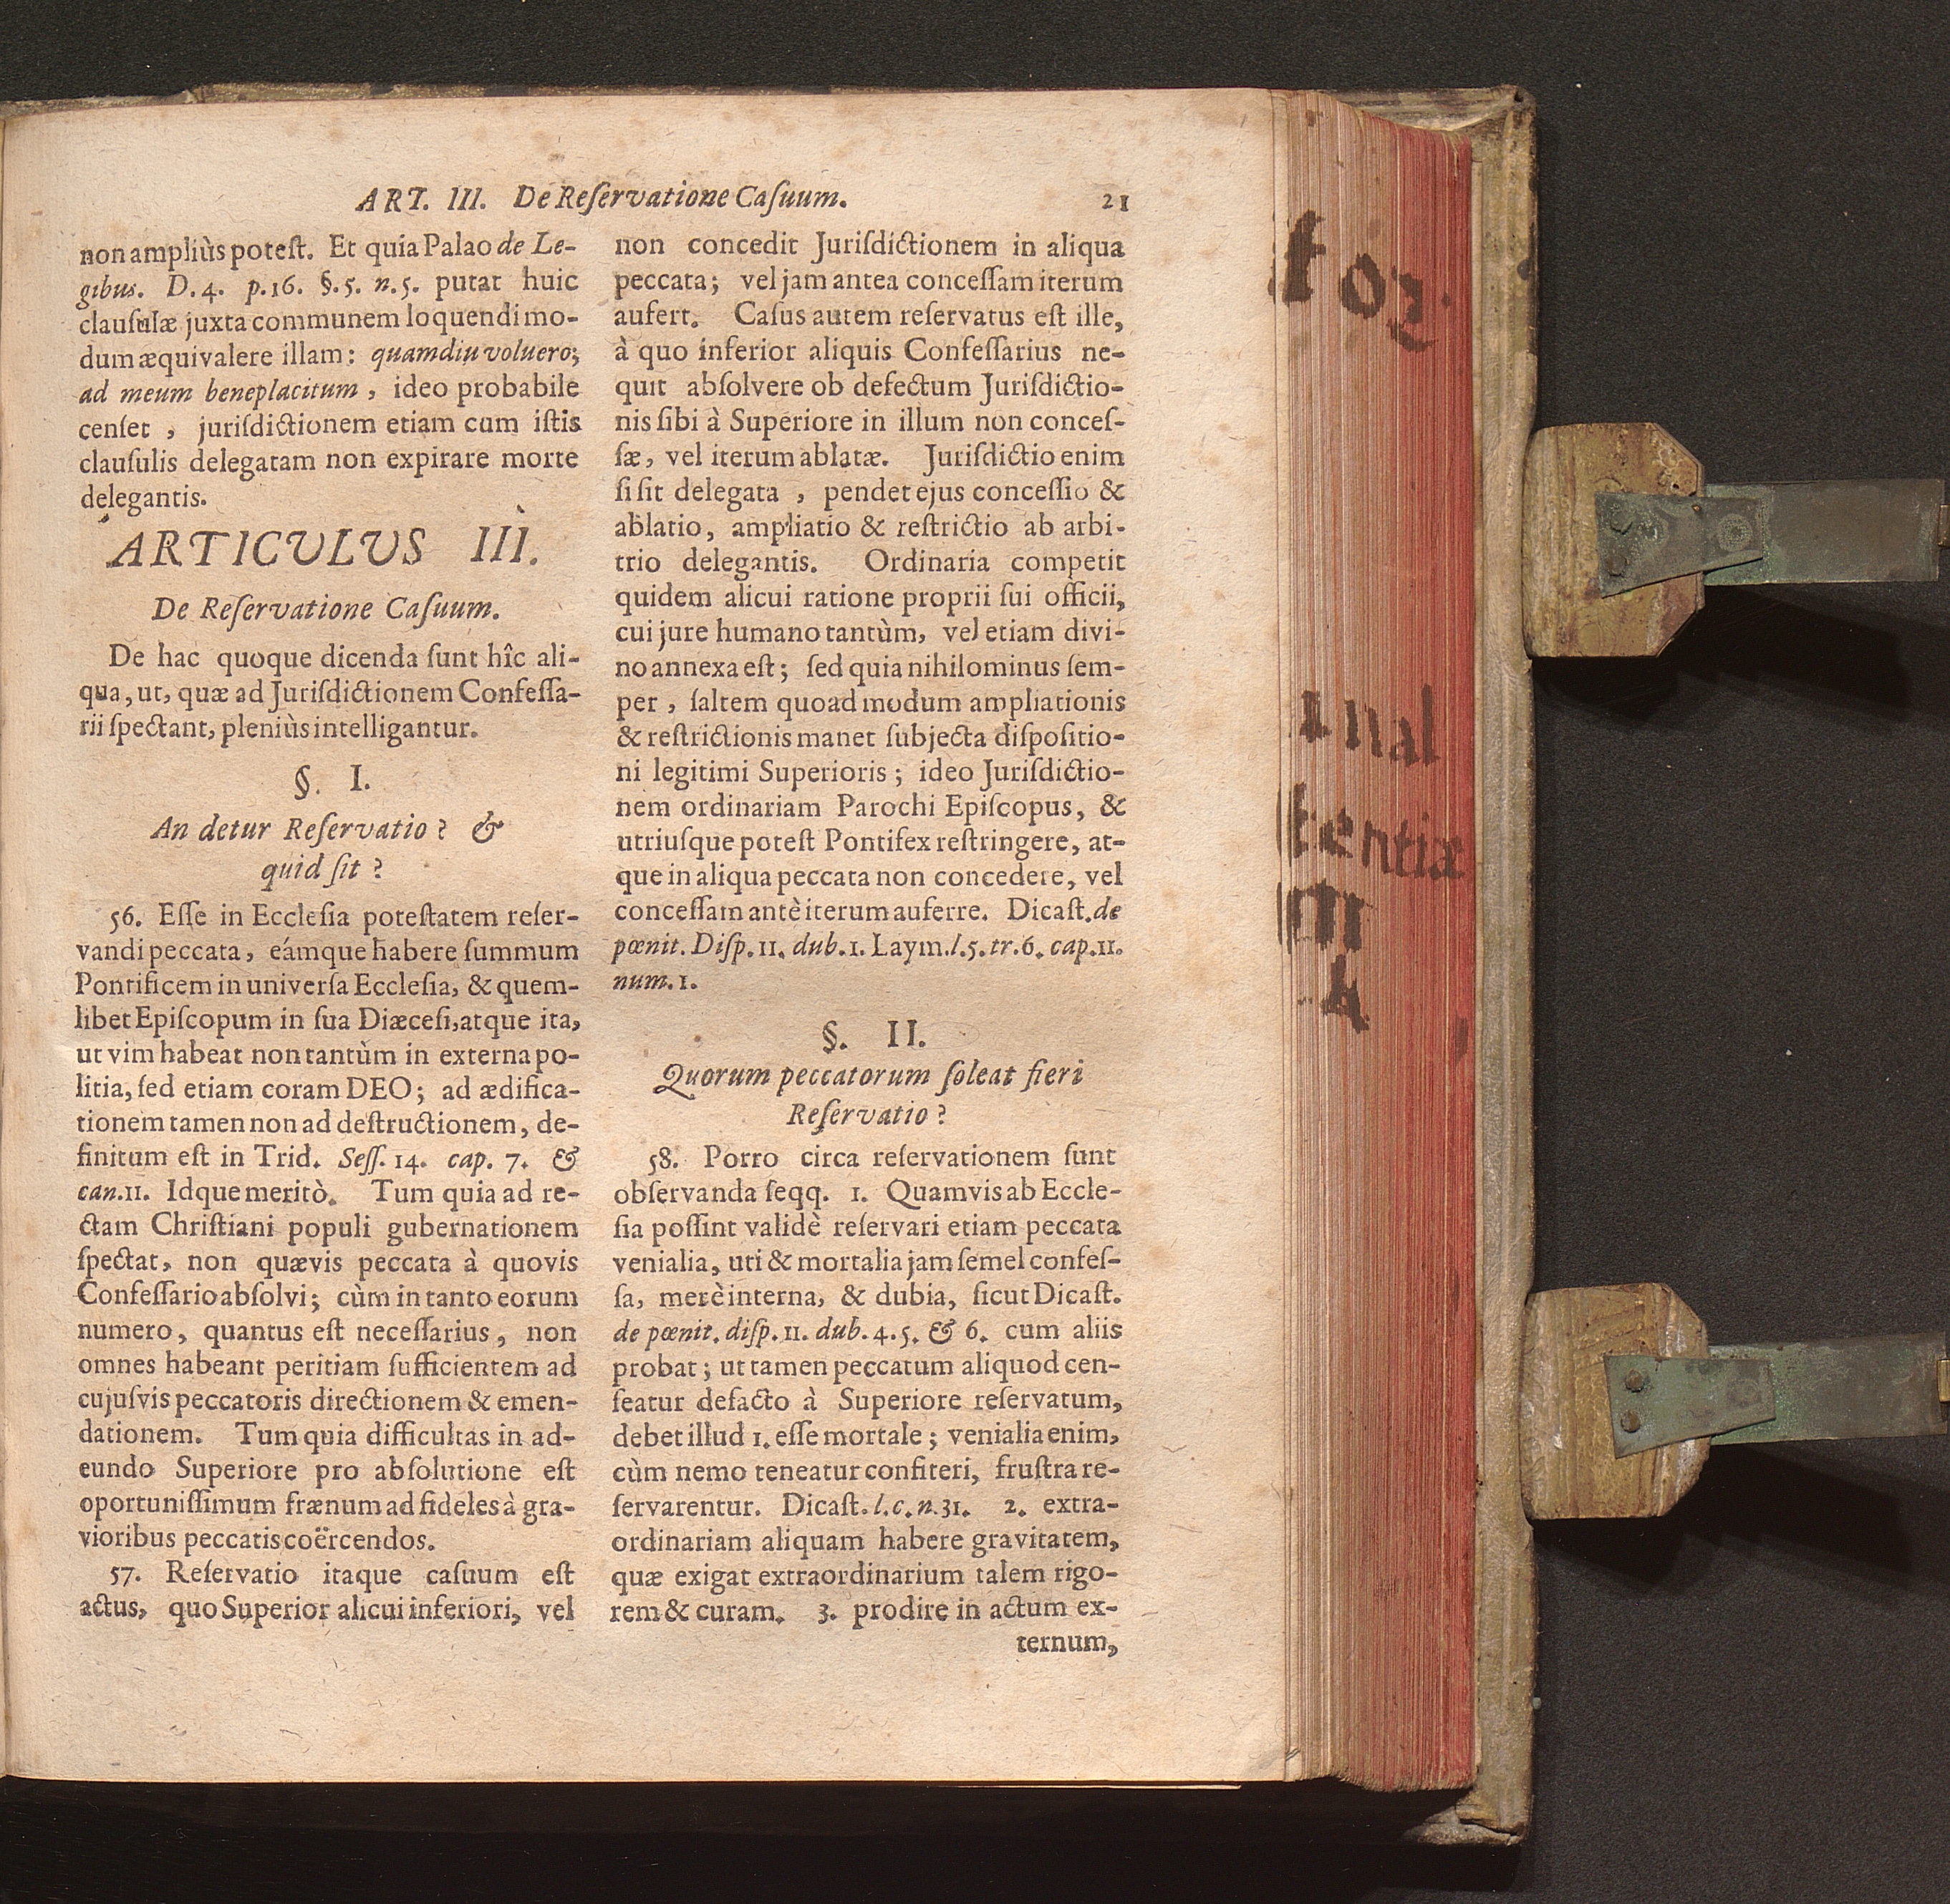 ART. III. De Reſervatione Caſuum. 21
non ampliùs poteſt. Et quia Palao de Le-
gibus. D. 4. p. 16. §. 5. n. 5. putat huic
clauſulæ juxta communem loquendi mo-
dum æquivalere illam: quamdiu voluero;
ad meum beneplacitum, ideo probabile
cenſet, juriſdictionem etiam cum iſtis
clauſulis delegatam non expirare morte
delegantis.
ARTICULUS III.
De Reſervatione Caſuum.
De hac quoque dicenda ſunt hîc ali-
qua, ut, quæ ad Juriſdictionem Confeſſa-
rii ſpectant, pleniùs intelligantur.
§. I.
An detur Reſervatio? &
quid ſit?
56. Eſſe in Eccleſia poteſtatem reſer-
vandi peccata, eámque habere ſummum
Pontificem in univerſa Eccleſia, & quem-
libet Epiſcopum in ſua Diæceſi, atque ita,
ut vim habeat non tantùm in externa po-
litia, ſed etiam coram DEO; ad ædifica-
tionem tamen non ad deſtructionem, de-
finitum eſt in Trid. Seſſ. 14. cap. 7. &
can. 11. Idque meritò. Tum quia ad re-
ctam Chriſtiani populi gubernationem
ſpectat, non quævis peccata à quovis
Confeſſario abſolvi; cùm in tanto eorum
numero, quantus eſt neceſſarius, non
omnes habeant peritiam ſufficientem ad
cujuſvis peccatoris directionem & emen-
dationem. Tum quia difficultas in ad-
eundo Superiore pro abſolutione eſt
oportuniſſimum frænum ad fideles à gra-
vioribus peccatis coërcendos.
57. Reſervatio itaque caſuum eſt
actus, quo Superior alicui inferiori, vel
non concedit Juriſdictionem in aliqua
peccata; vel jam antea conceſſam iterum
aufert. Caſus autem reſervatus eſt ille,
à quo inferior aliquis Confeſſarius ne-
quit abſolvere ob defectum Juriſdictio-
nis ſibi à Superiore in illum non conceſ-
ſæ, vel iterum ablatæ. Juriſdictio enim
ſi ſit delegata, pendet ejus conceſſio &
ablatio, ampliatio & reſtrictio ab arbi-
trio delegantis. Ordinaria competit
quidem alicui ratione proprii ſui officii,
cui jure humano tantùm, vel etiam divi-
no annexa eſt; ſed quia nihilominus ſem-
per, ſaltem quoad modum ampliationis
& reſtrictionis manet ſubjecta diſpoſitio-
ni legitimi Superioris; ideo Juriſdictio-
nem ordinariam Parochi Epiſcopus, &
utriuſque poteſt Pontifex reſtringere, at-
que in aliqua peccata non concedere, vel
conceſſam antè iterum auferre. Dicaſt. de
pœnit. Diſp. 11. dub. 1. Laym. l. 5. tr. 6. cap. 11.
num. 1.
§. II.
Quorum peccatorum ſoleat fieri
Reſervatio?
58. Porro circa reſervationem ſunt
obſervanda ſeqq. 1. Quamvis ab Eccle-
ſia poſſint validè reſervari etiam peccata
venialia, uti & mortalia jam ſemel confeſ-
ſa, merè interna, & dubia, ſicut Dicaſt.
de pœnit. diſp. 11. dub. 4. 5. & 6. cum aliis
probat; ut tamen peccatum aliquod cen-
ſeatur defacto à Superiore reſervatum,
debet illud 1. eſſe mortale; venialia enim,
cùm nemo teneatur confiteri, fruſtra re-
ſervarentur. Dicaſt. l. c. n. 31. 2. extra-
ordinariam aliquam habere gravitatem,
quæ exigat extraordinarium talem rigo-
rem & curam. 3. prodire in actum ex-
ternum,